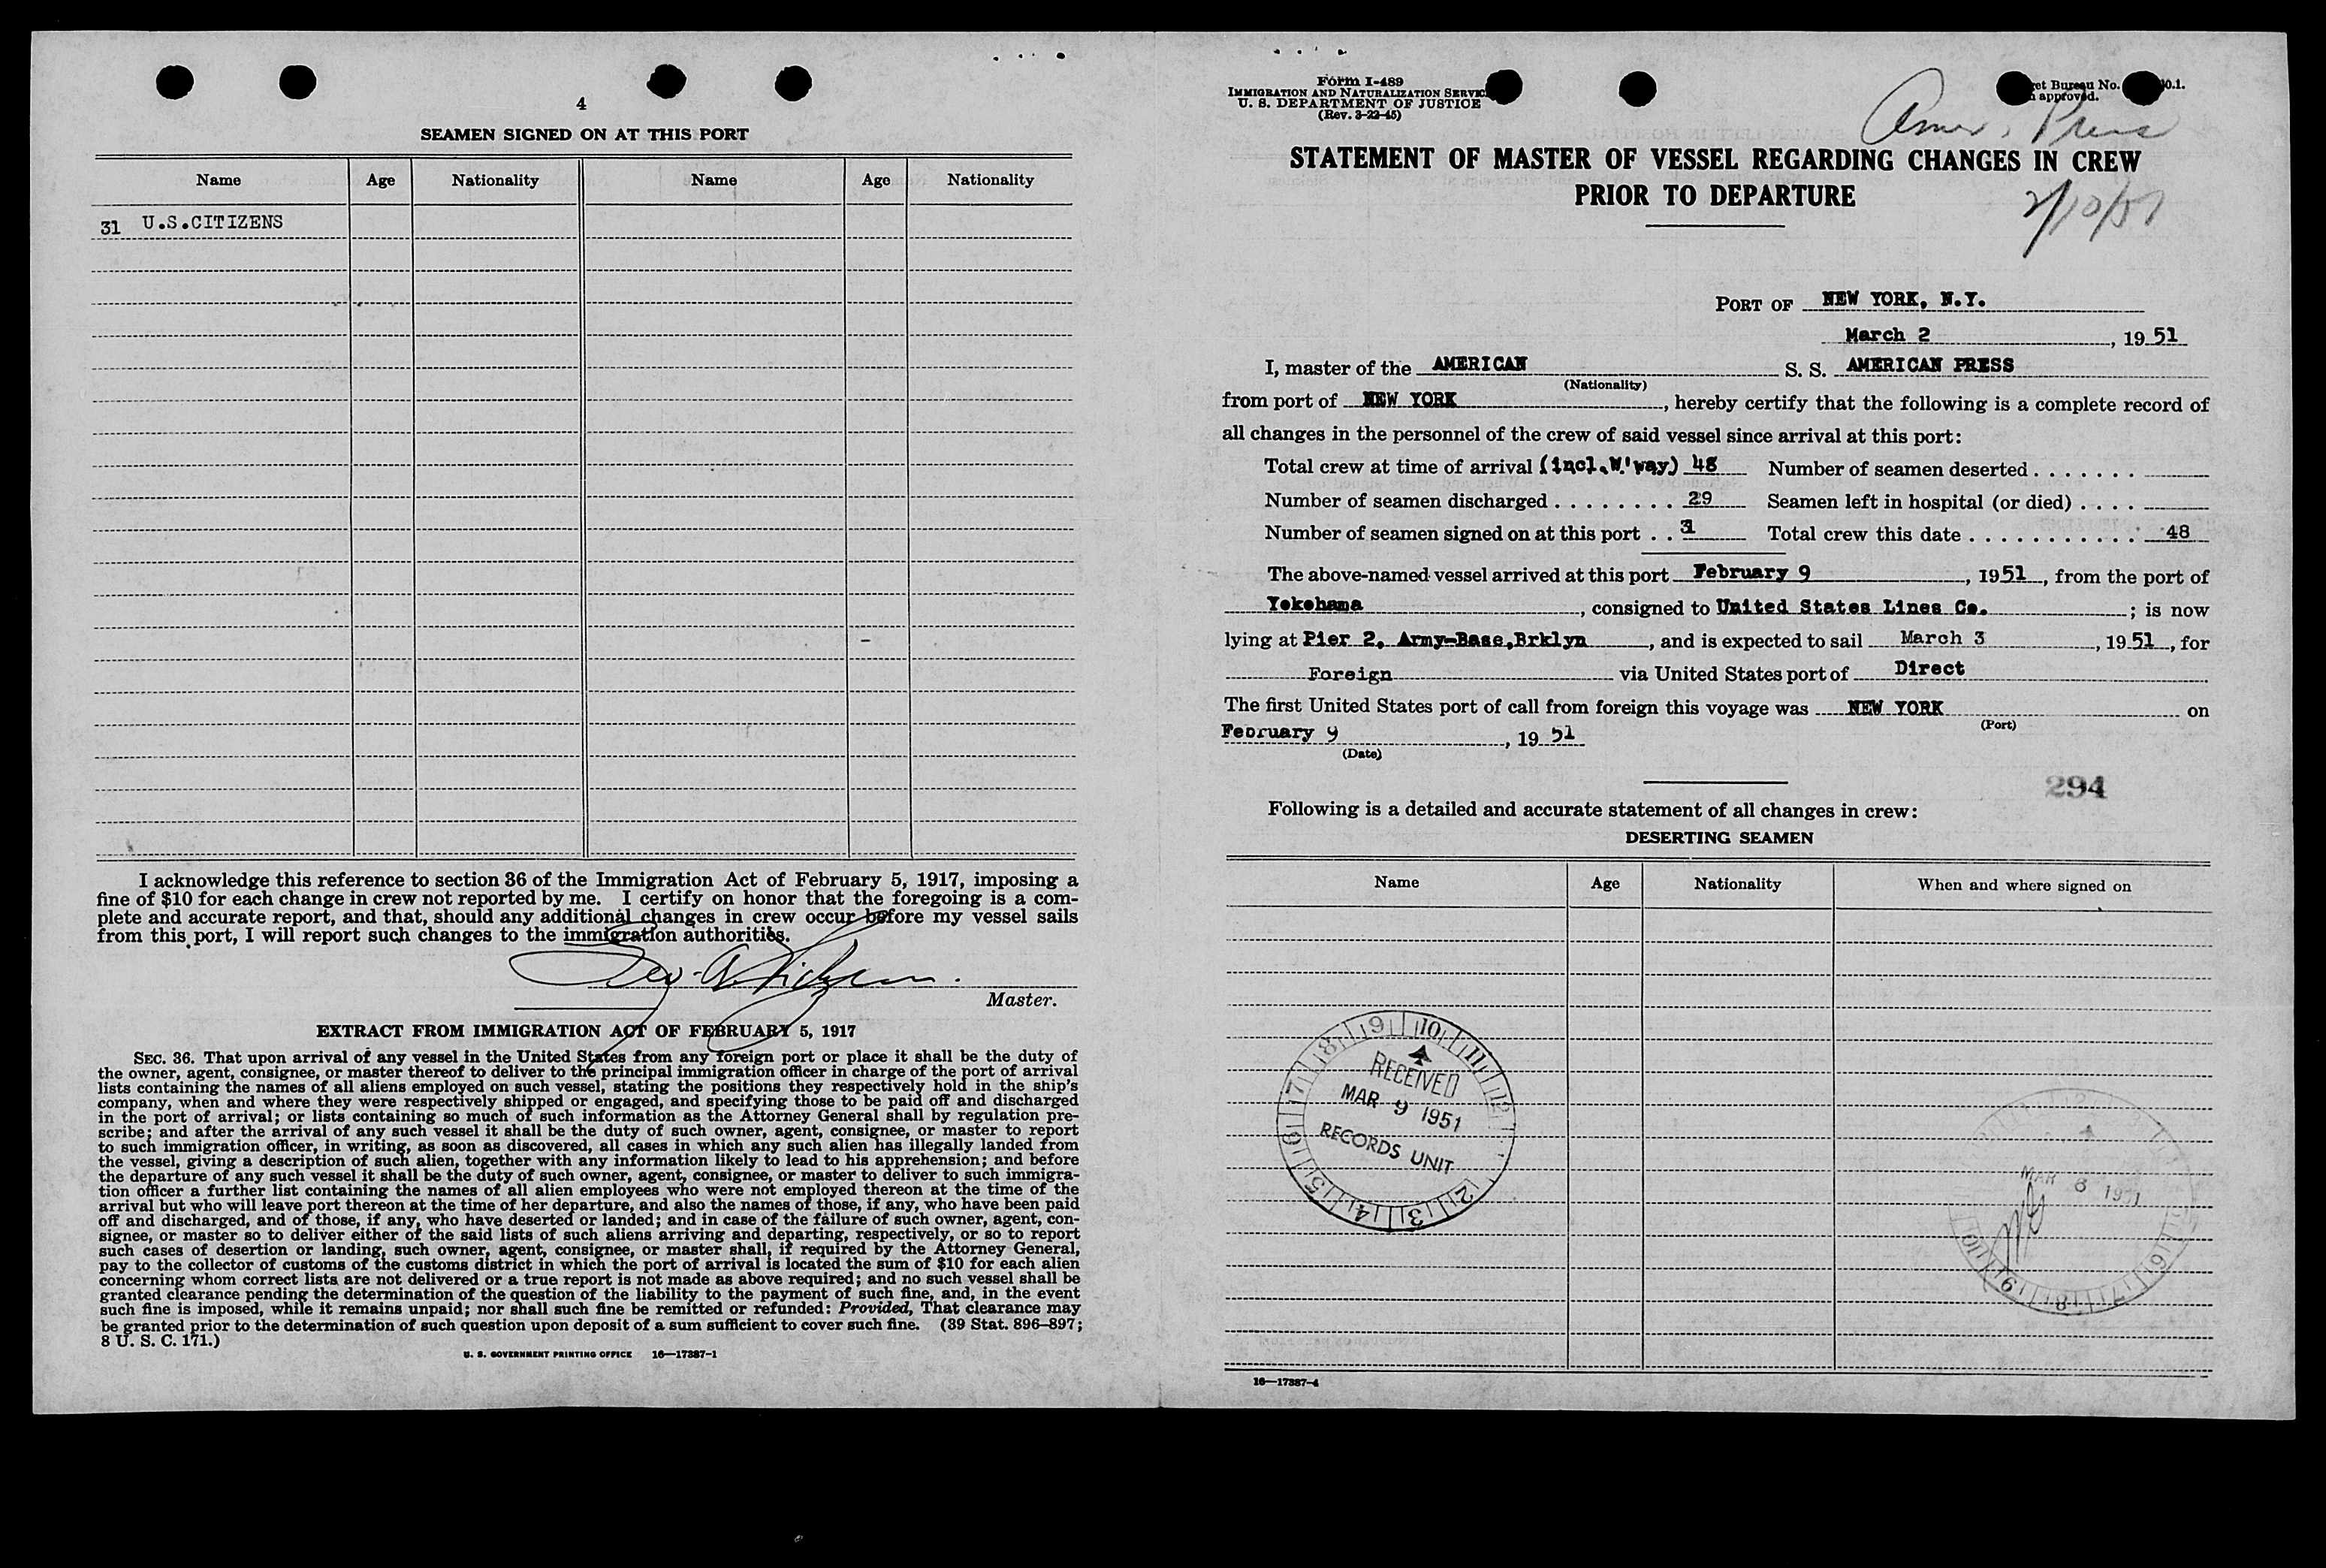 4
SEAMEN SIGNED ON AT THIS PORT
Name Age Nationality Name Age Nationality
31 U.S.CITIZENS
I acknowledge this reference to section 36 of the Immigration Act of February 5, 1917, imposing a
fine of $10 for each change in crew not reported by me. I certify on honor that the foregoing is a com-
plete and accurate report, and that, should any additional changes in crew occur before my vessel sails
from this port, I will report such changes to the immigration authorities.
Master.
EXTRACT FROM IMMIGRATION ACT OF FEBRUARY 5, 1917
SEC. 36. That upon arrival of any vessel in the United States from any foreign port or place it shall be the duty of
the owner, agent, consignee, or master thereof to deliver to the principal immigration officer in charge of the port of arrival
lists containing the names of all aliens employed on such vessel, stating the positions they respectively hold in the ship's
company, when and where they were respectively shipped or engaged, and specifying those to be paid off and discharged
in the port of arrival; or lists containing so much of such information as the Attorney General shall by regulation pre-
scribe; and after the arrival of any such vessel it shall be the duty of such owner, agent, consignee, or master to report
to such immigration officer, in writing, as soon as discovered, all cases in which any such alien has illegally landed from
the vessel, giving a description of such alien, together with any information likely to lead to his apprehension; and before
the departure of any such vessel it shall be the duty of such owner, agent, consignee, or master to deliver to such immigra-
tion officer a further list containing the names of all alien employees who were not employed thereon at the time of the
arrival but who will leave port thereon at the time of her departure, and also the names of those, if any, who have been paid
off and discharged, and of those, if any, who have deserted or landed; and in case of the failure of such owner, agent, con-
signee, or master so to deliver either of the said lists of such aliens arriving and departing, respectively, or so to report
such cases of desertion or landing, such owner, agent, consignee, or master shall, if required by the Attorney General,
pay to the collector of customs of the customs district in which the port of arrival is located the sum of $10 for each alien
concerning whom correct lists are not delivered or a true report is not made as above required; and no such vessel shall be
granted clearance pending the determination of the question of the liability to the payment of such fine, and, in the event
such fine is imposed, while it remains unpaid; nor shall such fine be remitted or refunded: Provided, That clearance may
be granted prior to the determination of such question upon deposit of a sum sufficient to cover such fine. (39 Stat. 896–897;
8 U. S. C. 171.)
U. S. GOVERNMENT PRINTING OFFICE 16—17387-1
Form I-489
IMMIGRATION AND NATURALIZATION SERVICE
U. S. DEPARTMENT OF JUSTICE
(Rev. 3-22-45)
Bureau No.
approved.
Amer. Press
STATEMENT OF MASTER OF VESSEL REGARDING CHANGES IN CREW
PRIOR TO DEPARTURE
2/10/51
PORT OF NEW YORK, N.Y.
March 2, 1951
I, master of the AMERICAN S. S. AMERICAN PRESS
(Nationality)
from port of NEW YORK, hereby certify that the following is a complete record of
all changes in the personnel of the crew of said vessel since arrival at this port:
Total crew at time of arrival (incl.W'way) 48 Number of seamen deserted
Number of seamen discharged 29 Seamen left in hospital (or died)
Number of seamen signed on at this port 31 Total crew this date 48
The above-named vessel arrived at this port February 9, 1951, from the port of
Yokohama, consigned to United States Lines Co.; is now
lying at Pier 2, Army-Base,Brklyn, and is expected to sail March 3, 1951, for
Foreign via United States port of Direct
The first United States port of call from foreign this voyage was NEW YORK on
(Port)
February 9, 19 51
(Date)
294
Following is a detailed and accurate statement of all changes in crew:
DESERTING SEAMEN
Name Age Nationality When and where signed on
RECEIVED
MAR 9 1951
RECORDS UNIT
MAR 8 1951
16—17387-4